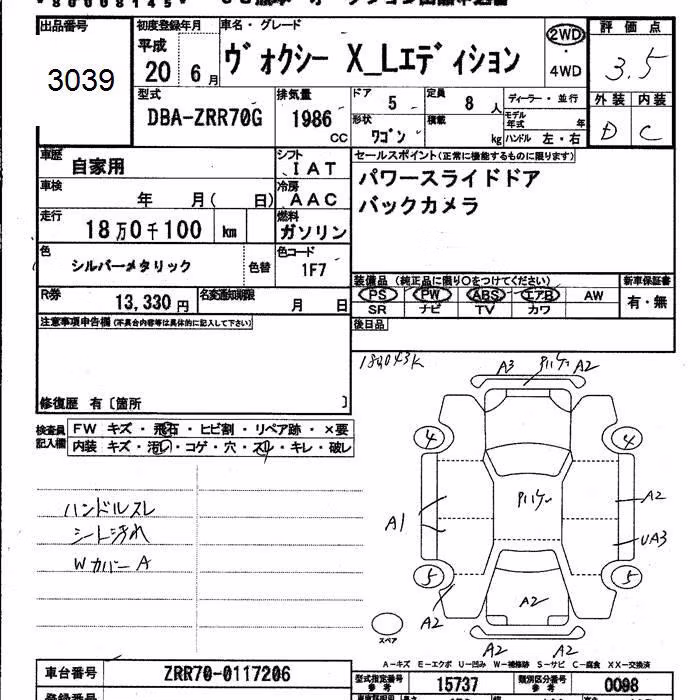 出品番号
3039
初度登録年月
平成
20 年 6 月
車名・グレード
ヴォクシー X_Lエディション
2WD
4WD
評価点
3.5
型式
DBA-ZRR70G
排気量
1986 cc
ドア 5
定員 8 人
形状 ワゴン
積載 kg
ディーラー・並行
モデル年式 年
ハンドル 左・右
外装 内装
D C
車歴
自家用
シフト
IAT
セールスポイント(正常に機能するものに限ります)
パワースライドドア
バックカメラ
車検
年 月( 日)
冷房
AAC
走行
18万0千100 km
燃料
ガソリン
色
シルバーメタリック
色替
色コード
1F7
装備品 (純正品に限り○をつけてください)
PS PW ABS エアB AW
SR ナビ TV カワ
新車保証書
有・無
R券
13,330円
名変通知期限
月 日
後日品
注意事項申告欄(不具合内容等は具体的に記入して下さい)
180043K
修復歴 有〔箇所 〕
検査員記入欄
FW キズ・飛石・ヒビ割・リペア跡・×要
内装 キズ・汚レ・コゲ・穴・スレ・キレ・破レ
ハンドルスレ
シート汚れ
Wカバー A
A3 A2
4 4
A1 A2
UA3
5 5
A2 A2
A2 A2
スペア
A-キズ E-エクボ U-凹み W-補修跡 S-サビ C-腐食 XX-交換済
車台番号
ZRR70-0117206
型式指定番号 参考
15737
類別区分番号 参考
0098